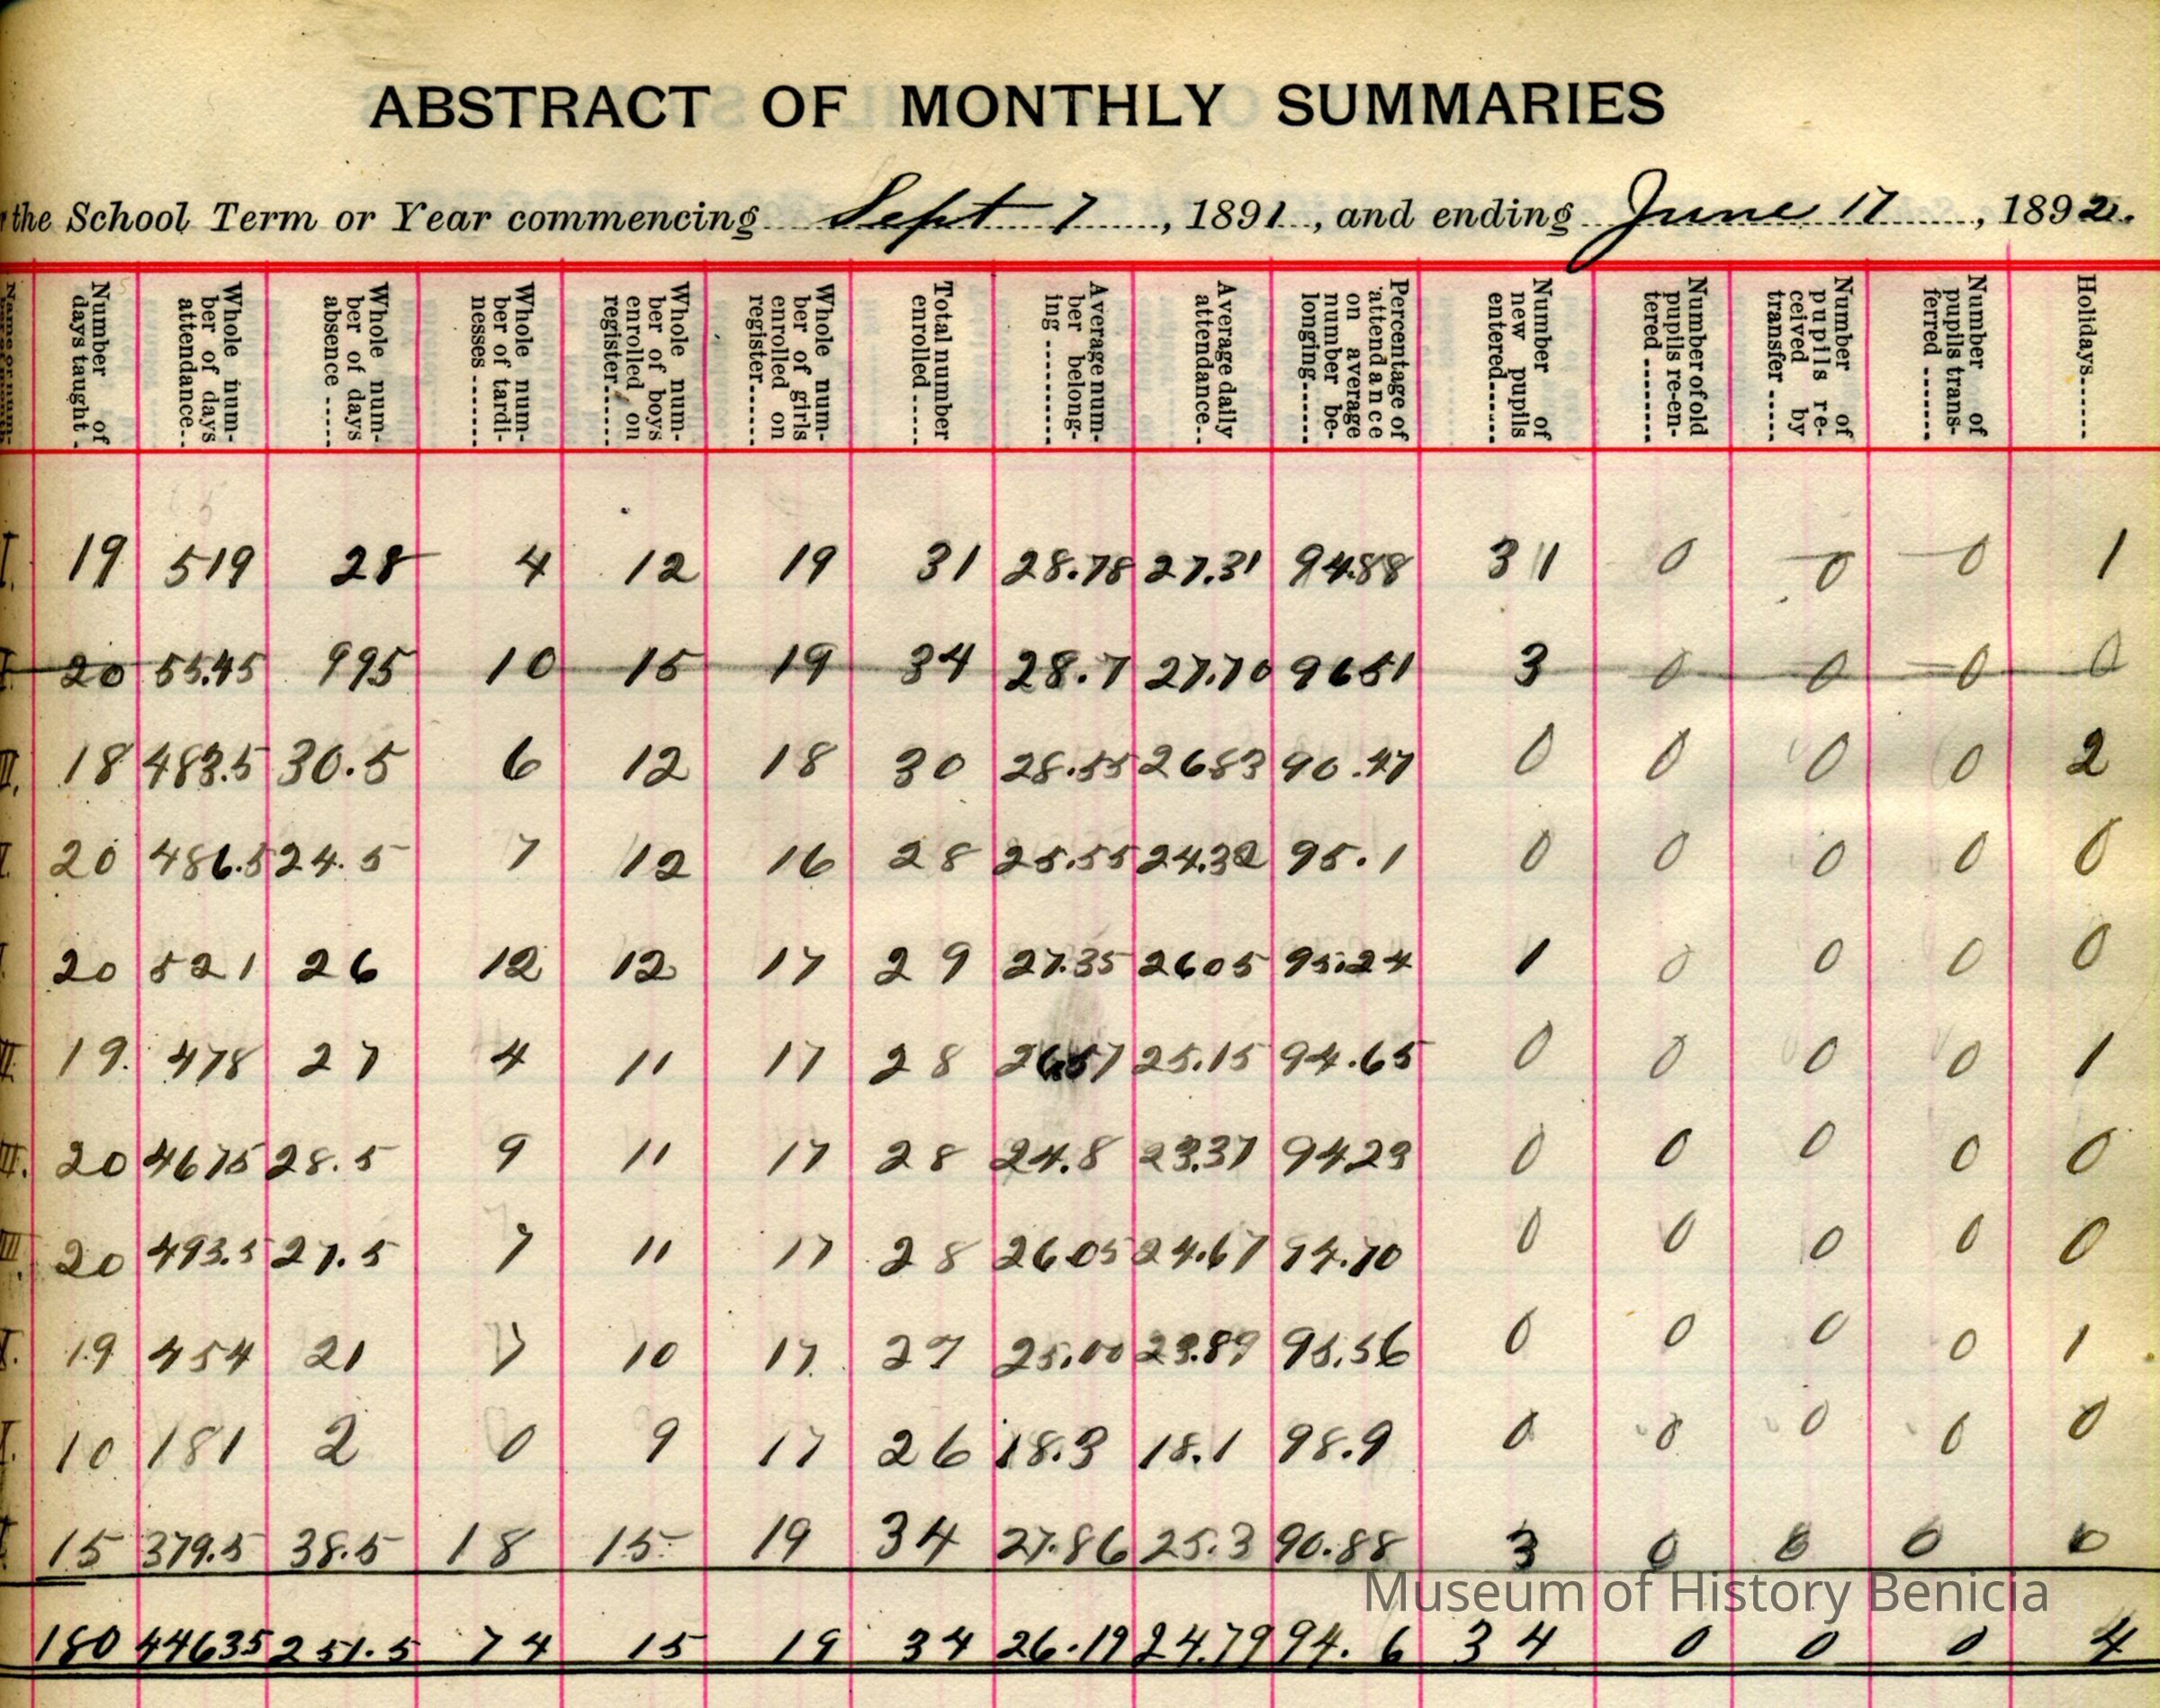 ABSTRACT OF MONTHLY SUMMARIES
the School Term or Year commencing Sept 7, 1891, and ending June 17, 1892.
Number of days taught
Whole number of days attendance
Whole number of days absence
Whole number of tardinesses
Whole number of boys enrolled on register
Whole number of girls enrolled on register
Total number enrolled
Average number belonging
Average daily attendance
Percentage of attendance on average number belonging
Number of new pupils entered
Number of old pupils re-entered
Number of pupils received by transfer
Number of pupils transferred
Holidays
I. 19 519 28 4 12 19 31 28.78 27.31 94.88 31 0 0 0 1
20 55.45 995 10 15 19 34 28.7 27.70 9651 3 0 0 0 0
18 483.5 30.5 6 12 18 30 28.55 2683 90.47 0 0 0 0 2
20 486.5 24.5 7 12 16 28 25.55 24.32 95.1 0 0 0 0 0
20 521 26 12 12 17 29 27.35 2605 95.24 1 0 0 0 0
19. 478 27 4 11 17 28 2657 25.15 94.65 0 0 0 0 1
20 4675 28.5 9 11 17 28 24.8 23.37 9423 0 0 0 0 0
20 493.5 27.5 7 11 17 28 26.05 24.67 94.70 0 0 0 0 0
19 454 21 7 10 17. 27 25.00 23.89 95.56 0 0 0 0 1
10 181 2 0 9 17 26 18.3 18.1 98.9 0 0 0 0 0
15 379.5 38.5 18 15 19 34 27.86 25.3 90.88 3 0 0 0 0
180 44635 251.5 74 15 19 34 26.19 24.79 94.6 34 0 0 0 4
Museum of History Benicia